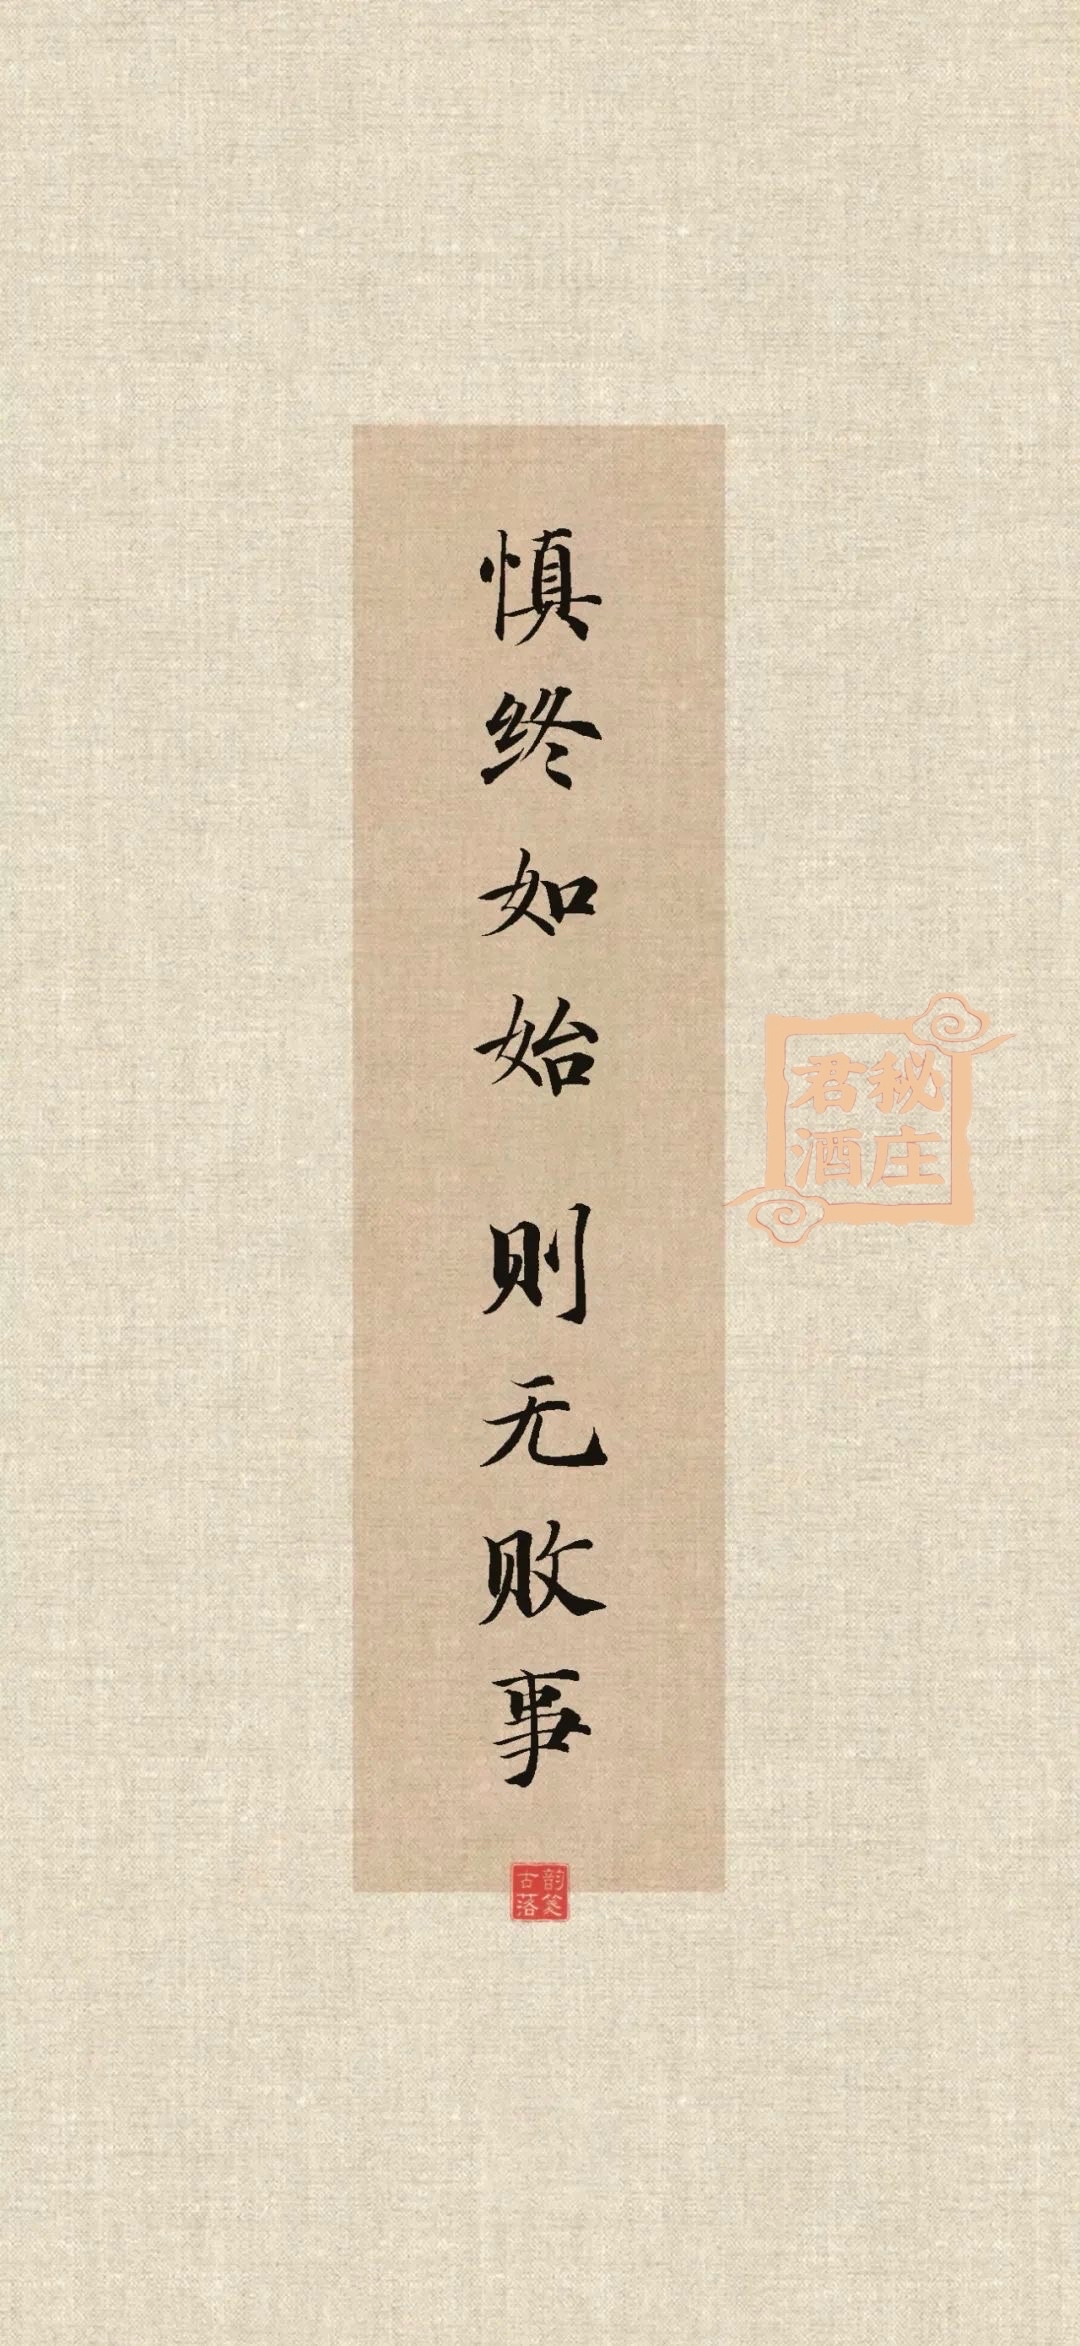 慎终如始 则无败事
君秘
酒庄
古韵
落笺